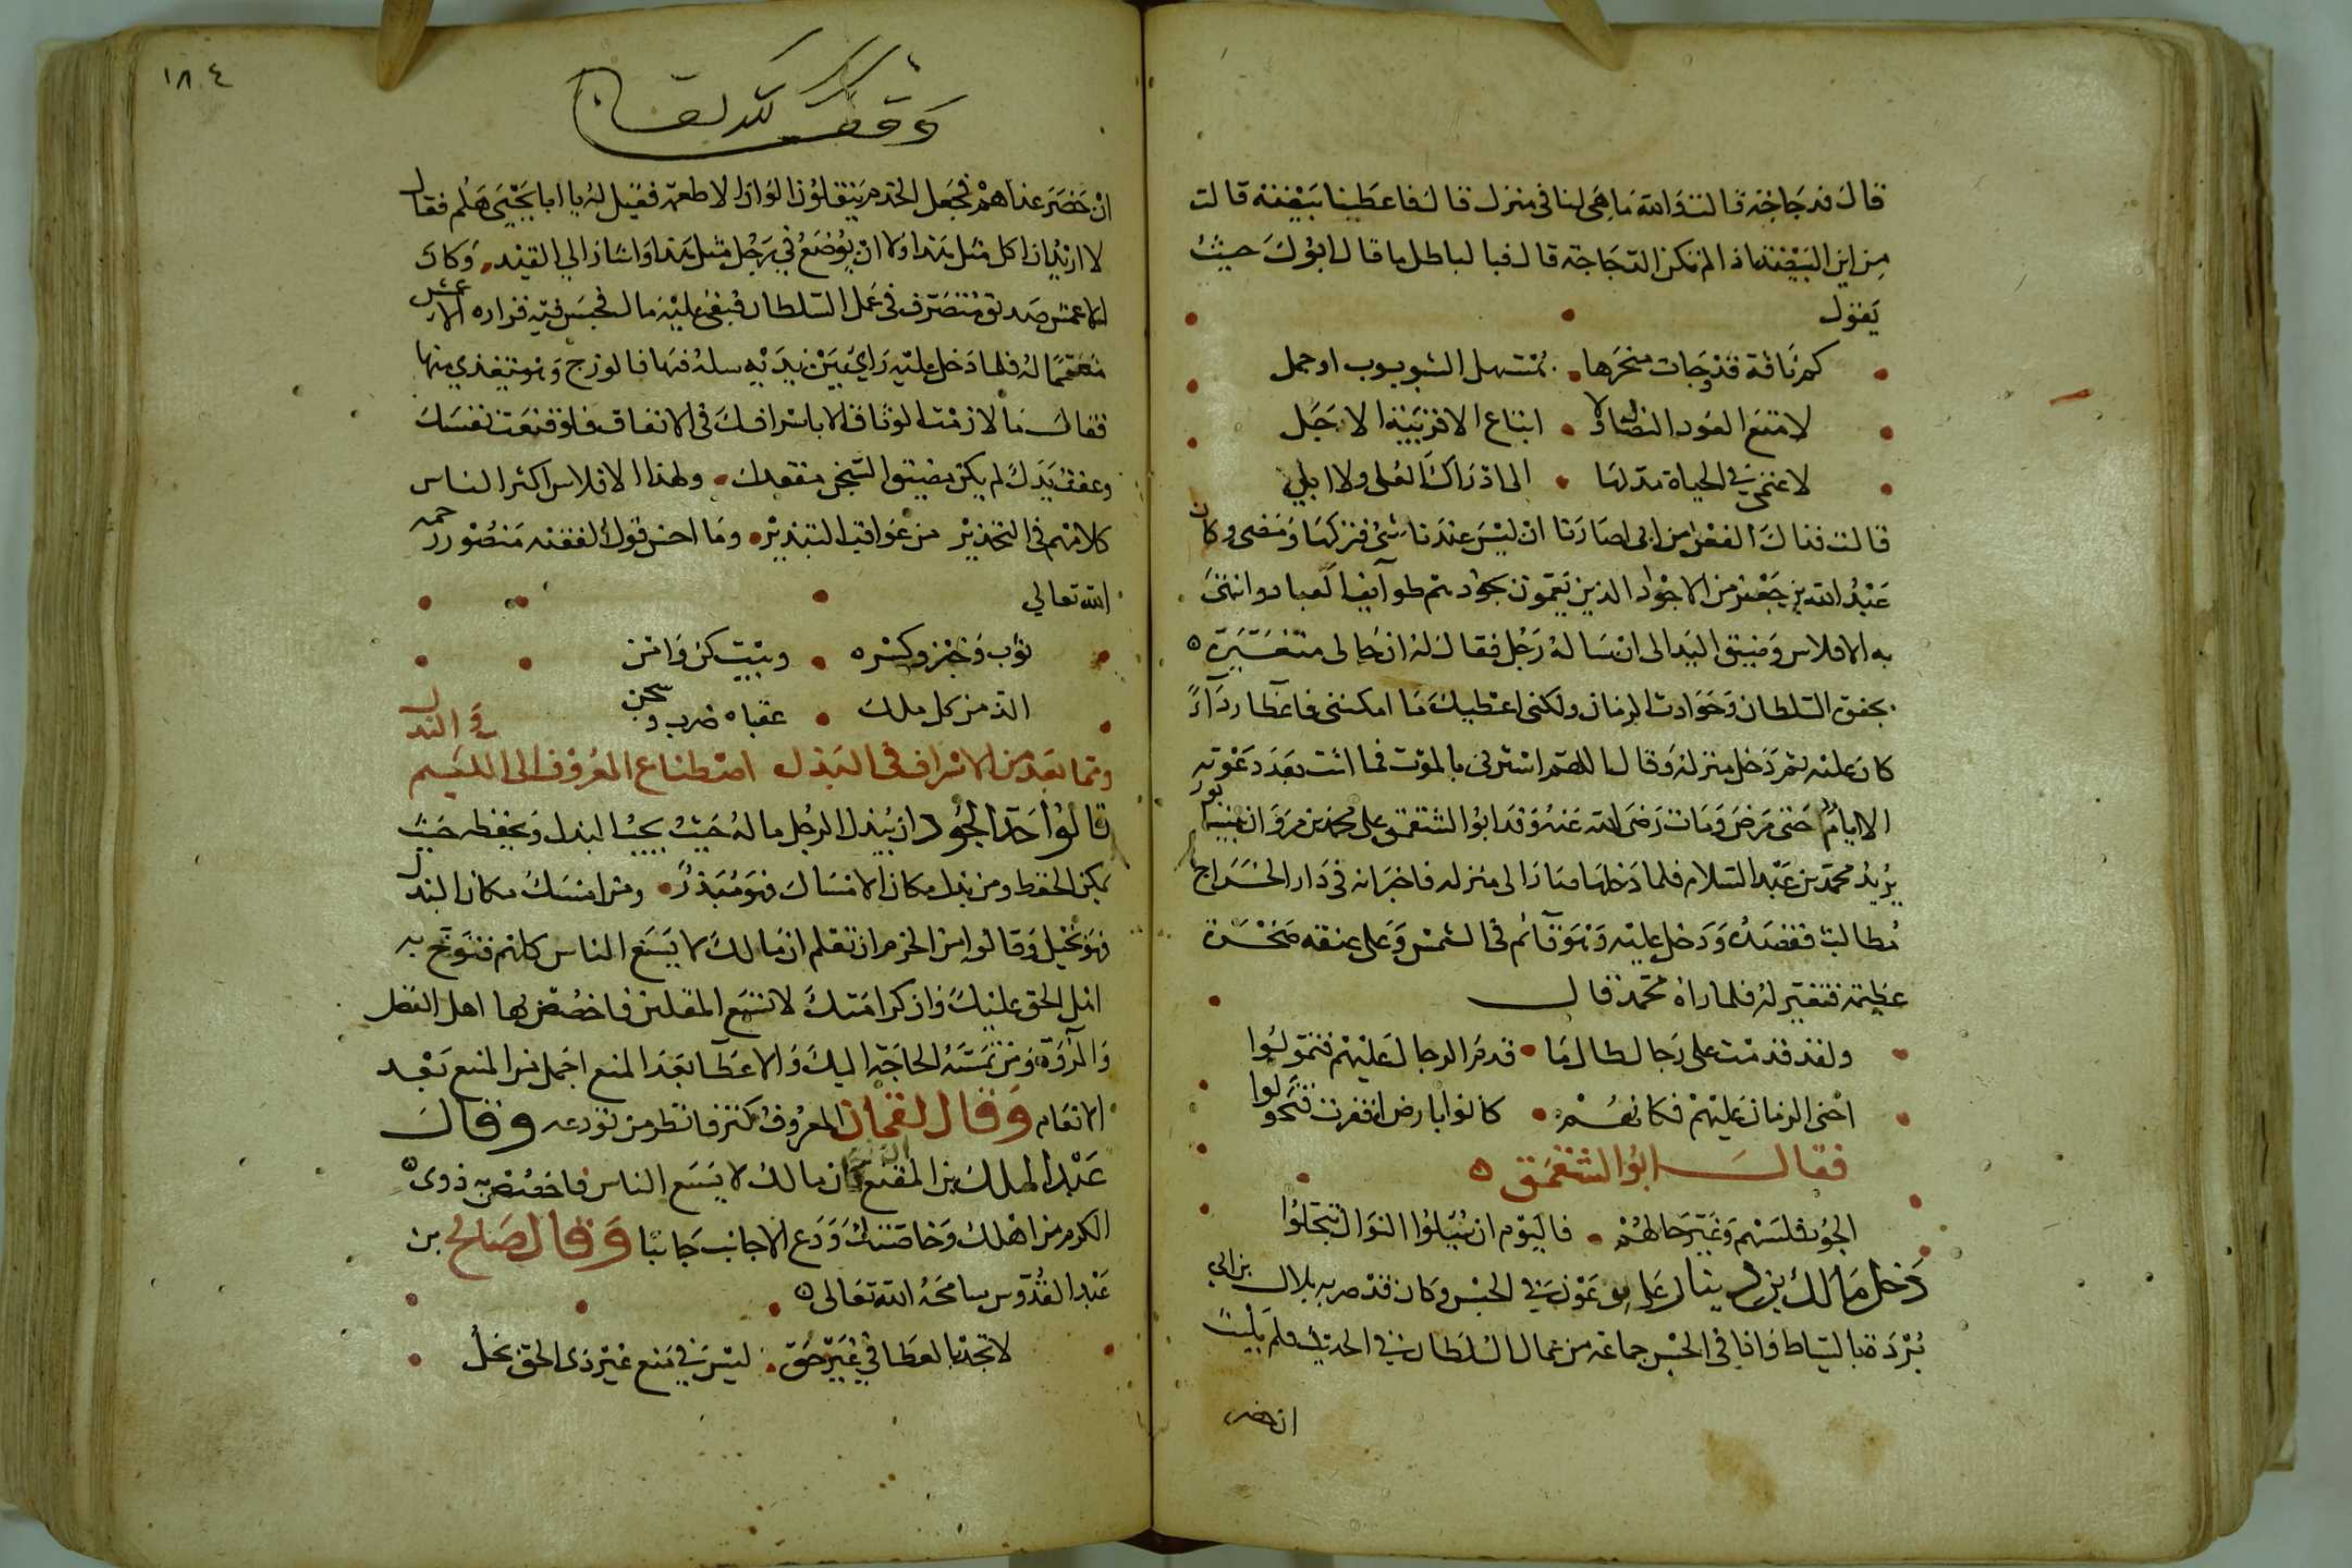 قال فدجاجة قالت والله ما هي لنا في منزل قال فاعطينا بيضة قالت
من اين البيضة اذا لم تكن الدجاجة قال فبا لباطل ما قال ابوك حيث
يقول
كم ناقة قد وجات منحرها • بمستهل الشوبوب او جمل
لا امتع العوذ الفصال ولا • ابتاع الا قريبة الاجل
لا غنمي في الحياة مد لها • الى ادراك العلى ولا ابلي
قالت فذاك الفعل من ابي اصارنا ان ليس عندنا شئ فتركها ومضى وكان
عبد الله بن جعفر من الاجواد الذين يعمون بجودهم طوايف العباد وانتهى
به الافلاس وضيق اليد الى ان ساله رجل فقال له ان حالي متغيرة
بجفوة السلطان وحوادث الزمان ولكني اعطيك ما امكنني فاعطاه رداءً
كان عليه ثم دخل منزله وقال اللهم استرني بالموت فما لبث بعد دعوته
الا اياما حتى مرض ومات رضي الله عنه وفد ابو الشمقمق على محمد بن مروان بنيسابور
يريد محمد بن عبد السلام فلما دخلها صار الى منزله فاخبر انه في دار الخراج
مطالب فقصده ودخل عليه وهو قائم في الشمس وعلى عنقه صخرة
عظيمة فتغير له فلما راه محمد قال
ولقد قدمت على رجال طالما • قدم الرجال عليهم فتمولوا
اخنى الزمان عليهم فكانهم • كانوا بارض اقفرت فتحولوا
فقال ابو الشمقمق
الجود فلسهم وغير حالهم • فاليوم ان سئلوا النوال تبخلوا
دخل مالك بن دينار على بن عون في الحبس وكان قد ضربه بلال بن ابي
بردة بالسياط فاذا في الحبس جماعة من عمال السلطان في الحديد فلم يلبث
ان حضر
١٨٤
وقف لله تعالى
ان حضر غذاهم فجعل الخدم ينقلون الوان الاطعمة فقيل له يا ابا يحيى هلم فقال
لا اريد ان اكل مثل هذا ولا ان يوضع في رجلي مثل هذا واشار الى القيد • وكان
للاعمش صديق متصرف في عمل السلطان فبقي عليه مال فحبس فيه فزاره الاعمش
فلما دخل عليه راى بين يديه سلة فيها فالوذج وهو يتغذى منها
فقال ما لازمت الوثاق الا باسرافك في الانفاق فلو قنعت نفسك
وعفت يدك لم يكن مضيق السجن مقعدك • ولهذا الافلاس اكثر الناس
كلامهم في التحذير من عواقب التبذير • وما احسن قول الفقيه منصور رحمه
الله تعالى
ثوب وخبز وكسره • وبيت كن وامن
الذ من كل ملك • عقباه ضرب وسجن
ومما يعد من الاسراف في البذل اصطناع المعروف الى اللئيم والنذل
قالوا حد الجود ان يبذل الرجل ماله حيث يجب البذل ويحفظه حيث
يمكن الحفظ ومن بذل مكان الامساك فهو مبذر • ومن امسك مكان البذل
فهو بخيل وقالوا من الحزم ان تعلم ان مالك لا يسع الناس كلهم فتوخ به
اهل الحق عليك وان كرامتك لا تسع المقلين فاخصص بها اهل الفضل
والمروة ومن تمسه الحاجة اليك والاعطا بعد المنع اجمل من المنع بعد
الانعام وقال لقمان المعروف كنز فانظر من تودعه وقال
عبد الملك بن المقفع ان مالك لا يسع الناس فاخصص به ذوي
الكرم من اهلك وخاصتك ودع الاجانب جانبا وقال صالح بن
عبد القدوس سامحه الله تعالى
لا تجد بالعطا في غير حق • ليس في منع غير ذي الحق بخل